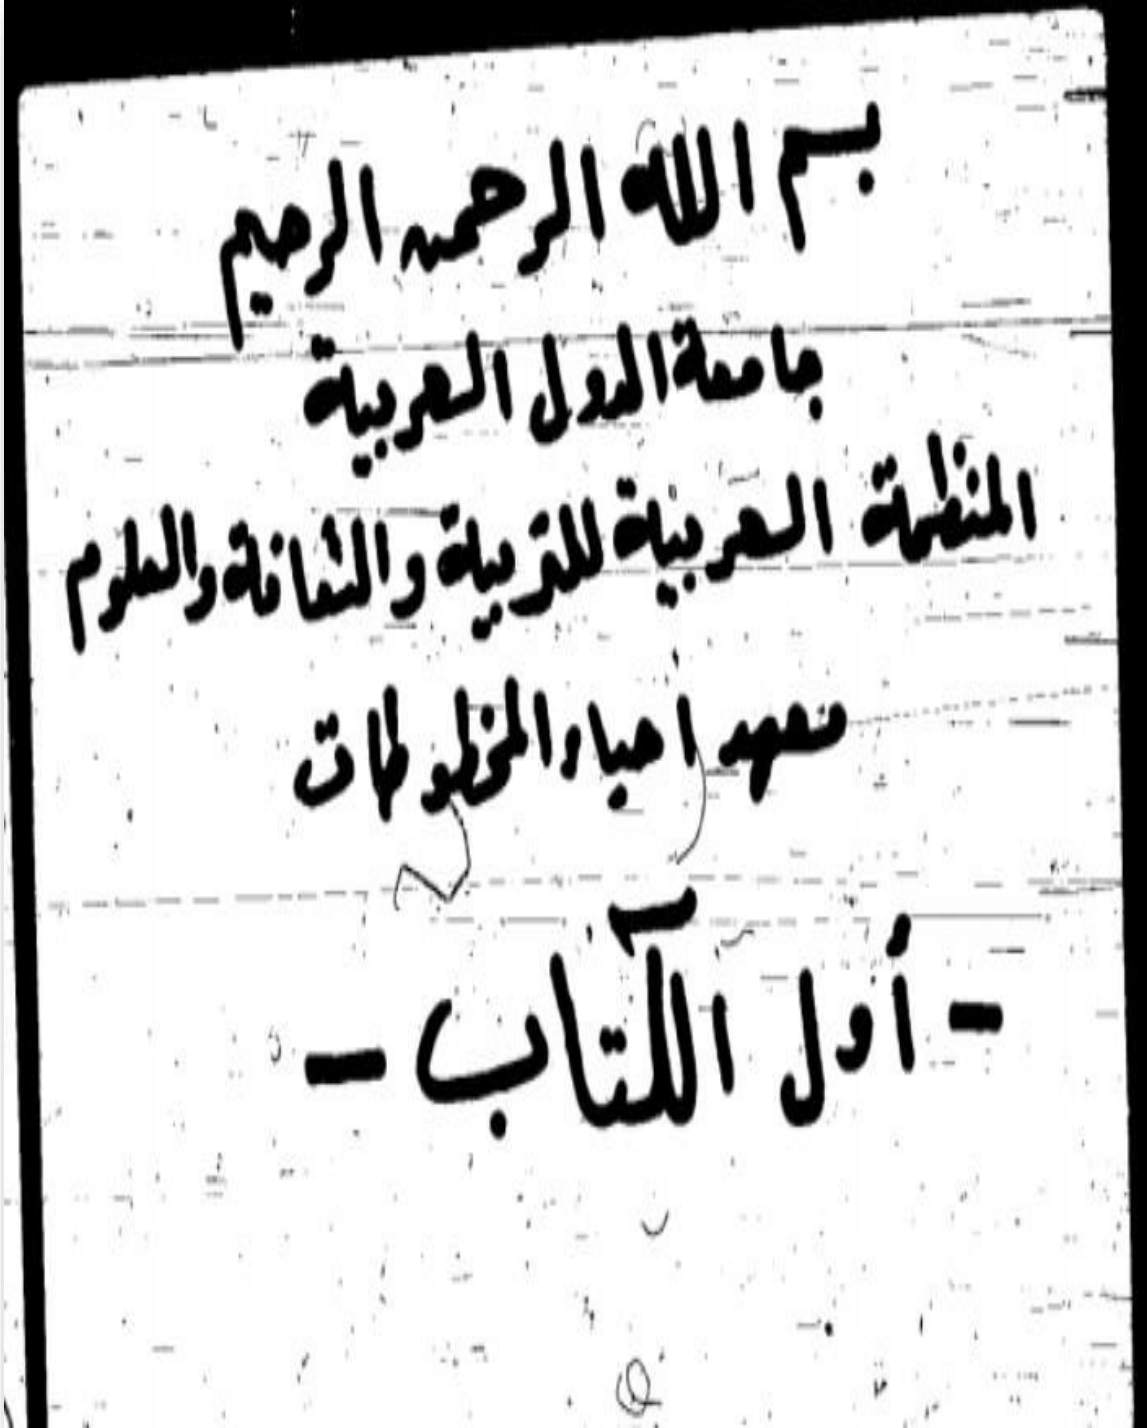 بسم الله الرحمن الرحيم
جامعة الدول العربية
المنظمة العربية للتربية والثقافة والعلوم
معهد احياء المخطوطات
- أول الكتاب -